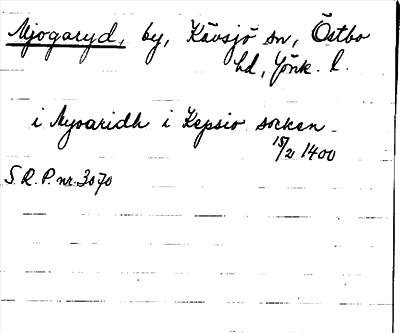 Mjogaryd, by, Kävsjö sn, Östbo
hd, Jönk. l.
i Myoaridh i Kepsio socken
15/2 1400
S.R.P. nr. 3070